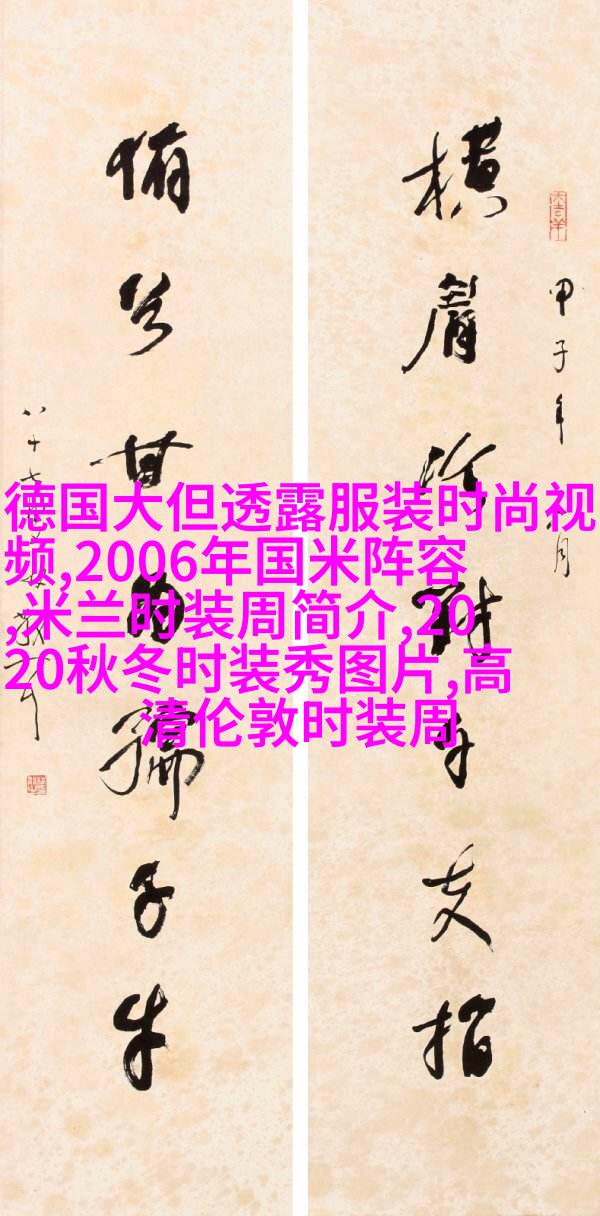 甲子年
横眉冷對千夫指
俯首甘為孺子牛
德国大但透露服装时尚视
频,2006年国米阵容
,米兰时装周简介,20
20秋冬时装秀图片,高
清伦敦时装周